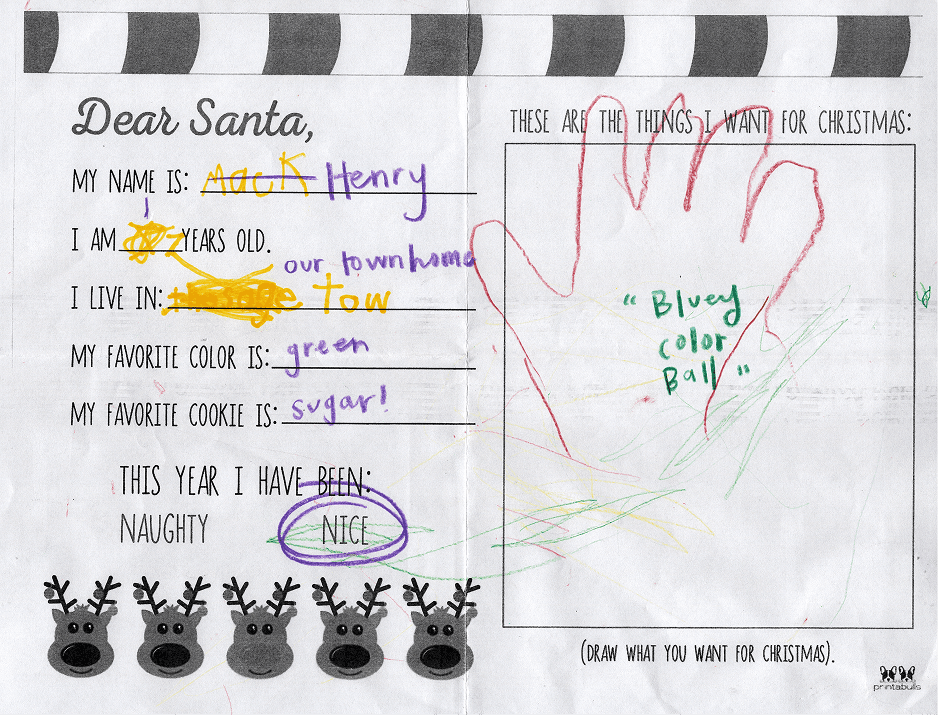 Dear Santa,
MY NAME IS: Mack Henry
I AM YEARS OLD.
our townhome
I LIVE IN: Tow
MY FAVORITE COLOR IS: green
MY FAVORITE COOKIE IS: sugar!
THIS YEAR I HAVE BEEN:
NAUGHTY NICE
THESE ARE THE THINGS I WANT FOR CHRISTMAS:
"Bluey
color
Ball"
(DRAW WHAT YOU WANT FOR CHRISTMAS).
printabulls